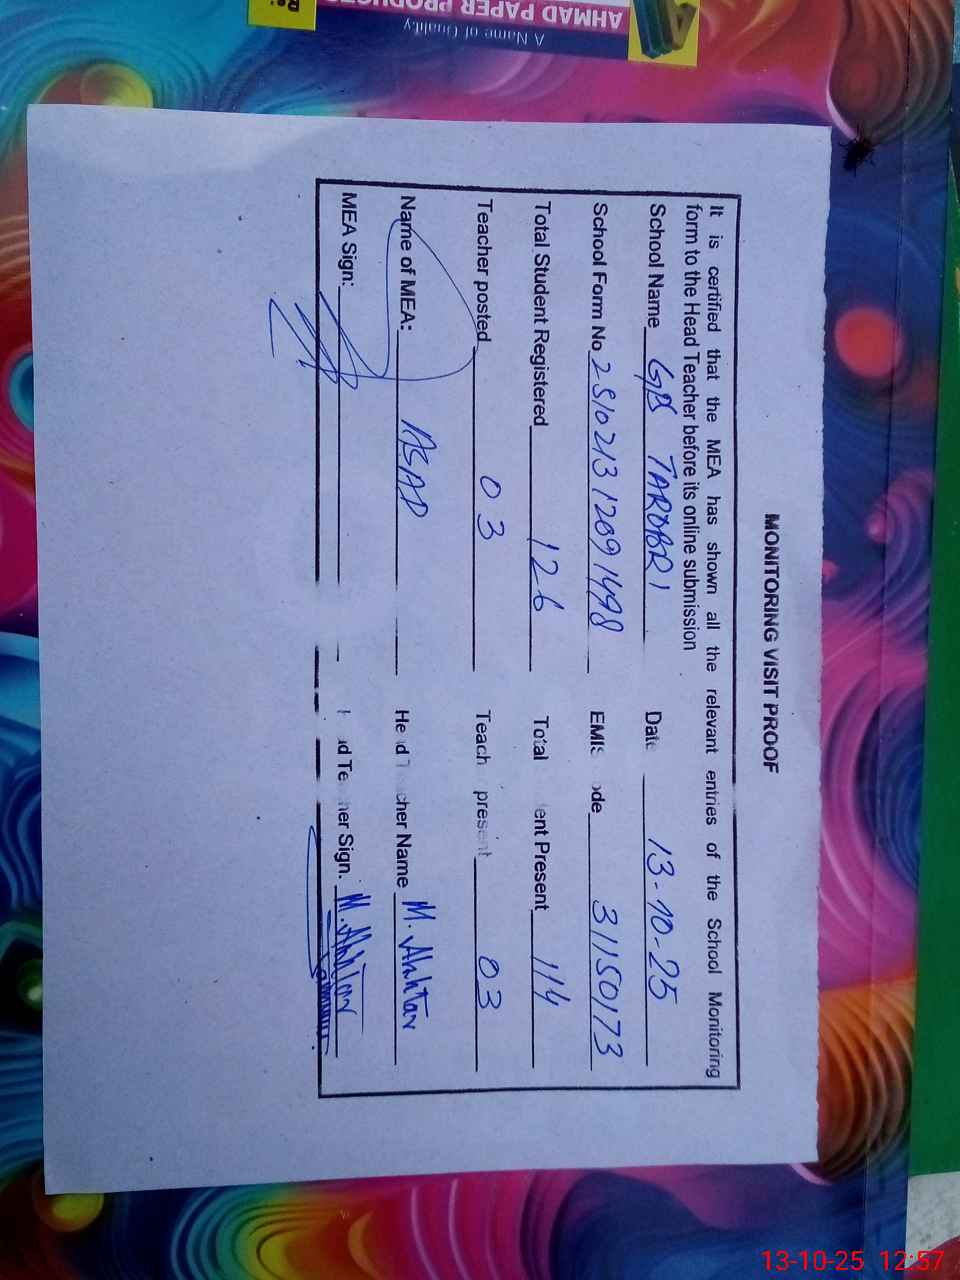 AHMAD PAPER PRODUCTS
A Name of Quality
MONITORING VISIT PROOF
It is certified that the MEA has shown all the relevant entries of the School Monitoring
form to the Head Teacher before its online submission
School Name GPS TARDBRI Date 13-10-25
School Form No 251021312091498 EMIS ode 31150173
Total Student Registered 126 Total ent Present 114
Teacher posted 03 Teach present 03
Name of MEA: ASAD Head Teacher Name M. Akhtar
MEA Sign: Head Teacher Sign. M. Akhtar
13-10-25 12:57